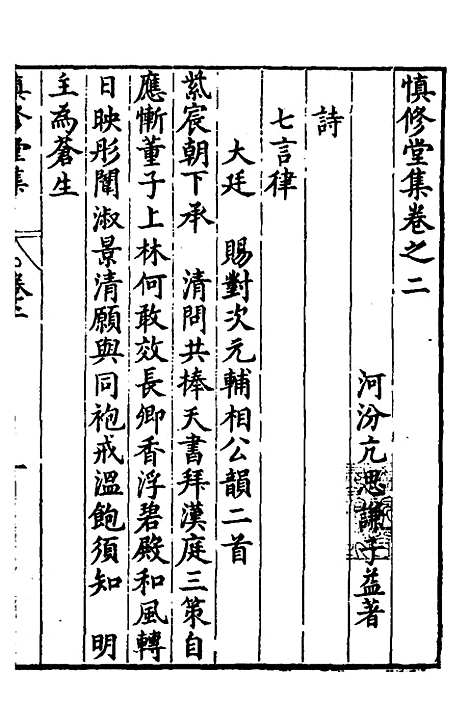 慎修堂集卷之二
河汾亢思謙子益著
詩
七言律
大廷　賜對次元輔相公韻二首
紫宸朝下承　清問共捧天書拜漢庭三策自
應慚董子上林何敢效長卿香浮碧殿和風轉
日映彤闈淑景清願與同袍戒溫飽須知　明
主為蒼生
慎修堂集　卷二　一